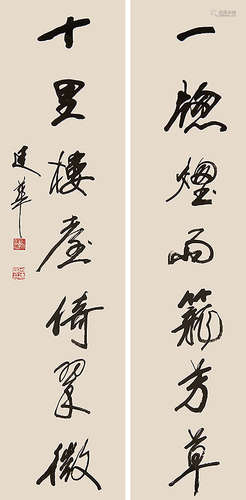 一牕煙雨籠芳草
十里樓臺倚翠微
建華